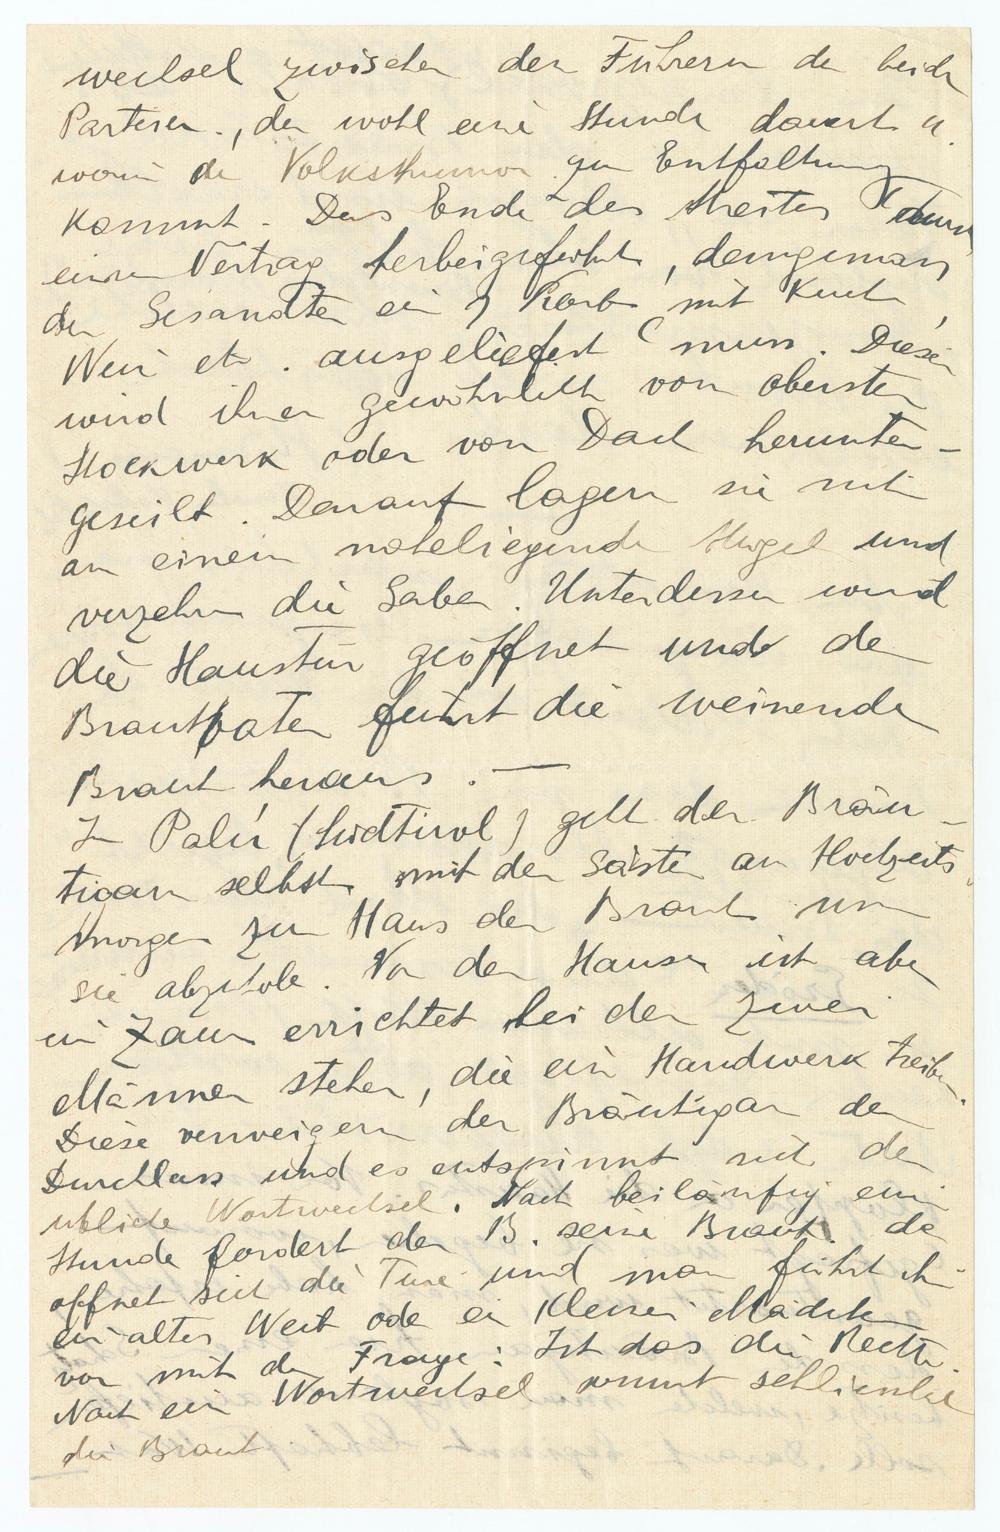 wechsel zwischen den Führern der beiden
Parteien, der wohl eine Stunde dauert u.
worin der Volkshumor zur Entfaltung
kommt. Das Ende des Streites durch
einen Vertrag herbeigeführt, demgemäss
den Gesandten ein Korb mit Kuchen,
Wein etc. ausgeliefert muss. Dieser
wird ihnen gewöhnlich vom obersten
Stockwerk oder vom Dach herunter-
geseilt. Darauf lagern sie sich
an einem naheliegenden Hügel und
verzehren die Gaben. Unterdessen wird
die Haustür geöffnet und der
Brautvater führt die weinende
Braut heraus. —
In Palú (Südtirol) geht der Bräu-
tigam selbst mit den Gästen am Hochzeits
morgen zum Haus der Braut um
sie abzuholen. Vor dem Hause ist aber
ein Zaun errichtet bei dem zwei
Männer stehen, die ein Handwerk treiben.
Diese verweigern dem Bräutigam den
Durchlass und es entspinnt sich der
übliche Wortwechsel. Nach beiläufig einer
Stunde fordert der B. seine Braut. da
öffnet sich die Türe und man führt ihm
ein altes Weib oder ein kleines Mädchen
vor mit der Frage: Ist das die Rechte.
Nach ein Wortwechsel kommt schliesslich
die Braut